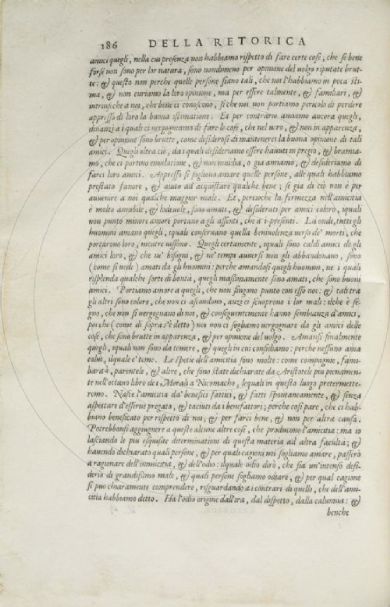 186 DELLA RETORICA
amici quegli, nella cui presenza non habbiamo rispetto di fare certe cose, che se bene
forse non sono per lor natura, sono nondimeno per opinione del volgo riputate brut-
te: & questo non perche quelle persone siano tali, che noi l'habbiamo in poca sti-
ma, & non curiamo la loro opinione, ma per essere talmente, & familiari, &
intrinseche a noi, che bene ci conoscono, si che noi non portiamo pericolo di perdere
appresso di loro la buona estimatione. Et per contrario amiamo ancora quegli,
dinanzi a i quali ci vergognamo di far le cose, che nel vero, & non in apparenza,
& per opinione sono brutte, come desiderosi di mantenerci la buona opinione di tali
amici. Quegli oltra ciò, da i quali desideriamo essere havuti in pregio, & bramia-
mo, che ci portino emulatione, & non invidia, o gia amiamo, & desideriamo di
farci loro amici. Appresso si sogliono amare quelle persone, alle quali habbiamo
prestato favore, & aiuto ad acquistare qualche bene; se gia da ciò non è per
avvenire a noi qualche maggior male. Et, percioche la fermezza nell'amicitia
è molto amabile, & lodevole, sono amati, & desiderati per amici coloro, i quali
non punto minore amore portano a gli assenti, che a i presenti. La onde, tutti gli
huomini amano quegli, i quali conservano quella benivolenza verso de' morti, che
portarono loro, mentre vissono. Quegli certamente, i quali sono caldi amici de gli
amici loro, & che ne' bisogni, & ne' tempi avversi non gli abbandonano, sono
(come si vede) amati da gli huomini: perche amandosi quegli huomini, ne i quali
risplenda qualche sorte di bontà, quegli massimamente sono amati, che sono buoni
amici. Portiamo amore a quegli, che non fingono punto con esso noi: & tali tra
gli altri sono coloro, che non ci ascondono, anzi ci scuoprono i lor mali: il che è se-
gno, che non si vergognano di noi, & conseguentemente hanno sembianza d'amici,
perche (come di sopra s'è detto) noi non ci sogliamo vergognare da gli amici delle
cose, che sono brutte in apparenza, & per opinione del volgo. Amansi finalmente
quegli, i quali non sono da temere, & quegli in cui confidiamo: perche nessuno ama
colui, il quale e' teme. Le spetie dell'amicitia sono molte: come compagnie, fami-
liarità, parentele, & altre, che sono state dichiarate da Aristotele piu pienamen-
te nell'ottavo libro de i Morali a Nicomacho, le quali in questo luogo pretermette-
remo. Nasce l'amicitia da' benefici fatti, & fatti spontaneamente, & senza
aspettare d'essere pregato, & taciuti da i benefattori; perche cosi pare, che ci hab-
biano beneficato per rispetto di noi, & per farci bene, & non per altra causa.
Potrebbonsi aggiugnere a queste alcune altre cose, che producono l'amicitia: ma io
lasciando le piu esquisite determinationi di questa materia ad altra facultà; &
havendo dichiarato quali persone, & per quali cagioni noi sogliamo amare, passerò
a ragionare dell'inimicitia, & dell'odio: il quale odio dirò, che sia un'intenso desi-
derio di grandissimo male, & quali persone sogliamo odiare, & per qual cagione
si può chiaramente comprendere, risguardando a i contrari di quelli, che dell'ami-
citia habbiamo detto. Ha l'odio origine dall'ira, dal dispetto, dalla calunnia: &
benche